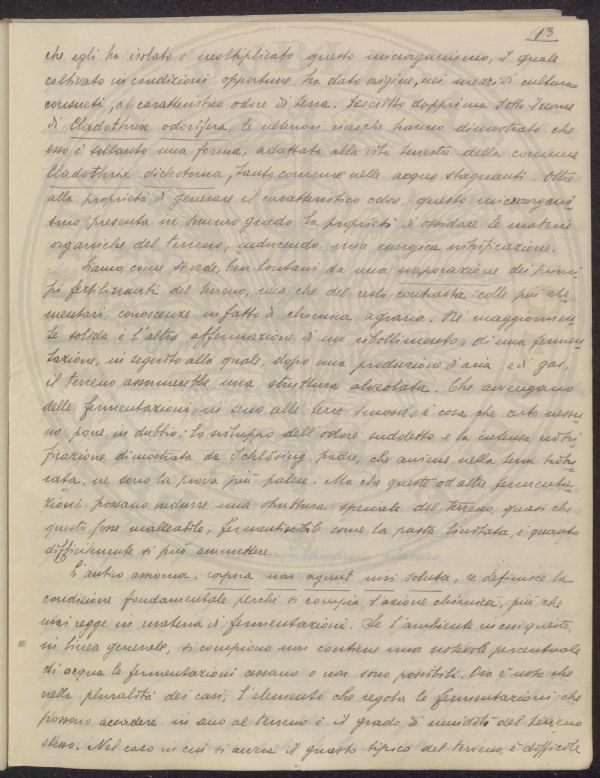 13
che egli ha isolato e moltiplicato questo microrganismo, il quale
coltivato in condizioni opportune ha dato origine, nei mezzi di cultura
consueti, al caratteristico odore di terra. Descritto dapprima sotto il nome
di Cladothrix odorifera, le ulteriori ricerche hanno dimostrato che
esso è soltanto una forma, adattata alla vita terrestre della comune
Cladothrix dichotoma, tanto comune nelle acque stagnanti. Oltre
alla proprietà di generare il caratteristico odore, questo microrgani
smo presenta in sommo grado la proprietà di ossidare le materie
organiche del terreno, inducendo una energica nitrificazione.
Siamo, come si vede, ben lontani da una evaporazione dei princi
pi fertilizzanti del terreno, idea che del resto contrasta colle più ele-
mentari conoscenze in fatto di chimica agraria. Nè maggiormen-
te solida è l'altra affermazione di un ribollimento, di una fermen-
tazione, in seguito alla quale, dopo una produzione di aria e di gas,
il terreno assumerebbe una struttura alveolata. Che avvengano
delle fermentazioni in seno alle terre smosse, è cosa che certo nessu-
no pone in dubbio: lo sviluppo dell'odore suddetto e la intensa nitri-
ficazione dimostrata da Schlösing padre, che avviene nella terra
ne sono la prova più palese. Ma che queste od altre fermenta-
zioni possano indurre una struttura speciale del terreno, quasi che
questo fosse malleabile, fermentiscibile come la pasta lievitata, è quanto
difficilmente si può ammettere.
L'antico assioma, corpora non agunt nisi soluta, se definisce la
condizione fondamentale perchè si compia l'azione chimica, più che
mai regge in materia di fermentazioni. Se l'ambiente in cui queste,
in linea generale, si compiono non contiene una notevole percentuale
di acqua le fermentazioni cessano o non sono possibili. Ora è noto che
nella pluralità dei casi, l'elemento che regola le fermentazioni che
possono accadere in seno al terreno è il grado di umidità del terreno
stesso. Nel caso in cui si avvia il guasto tipico del terreno, è difficile